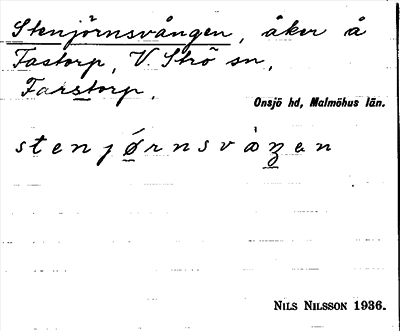 Stenjörnsvången, åker å
Fastorp, V. Strö sn,
Farstorp.
Onsjö hd, Malmöhus län.
stenjørnsvåꝫen
NILS NILSSON 1936.